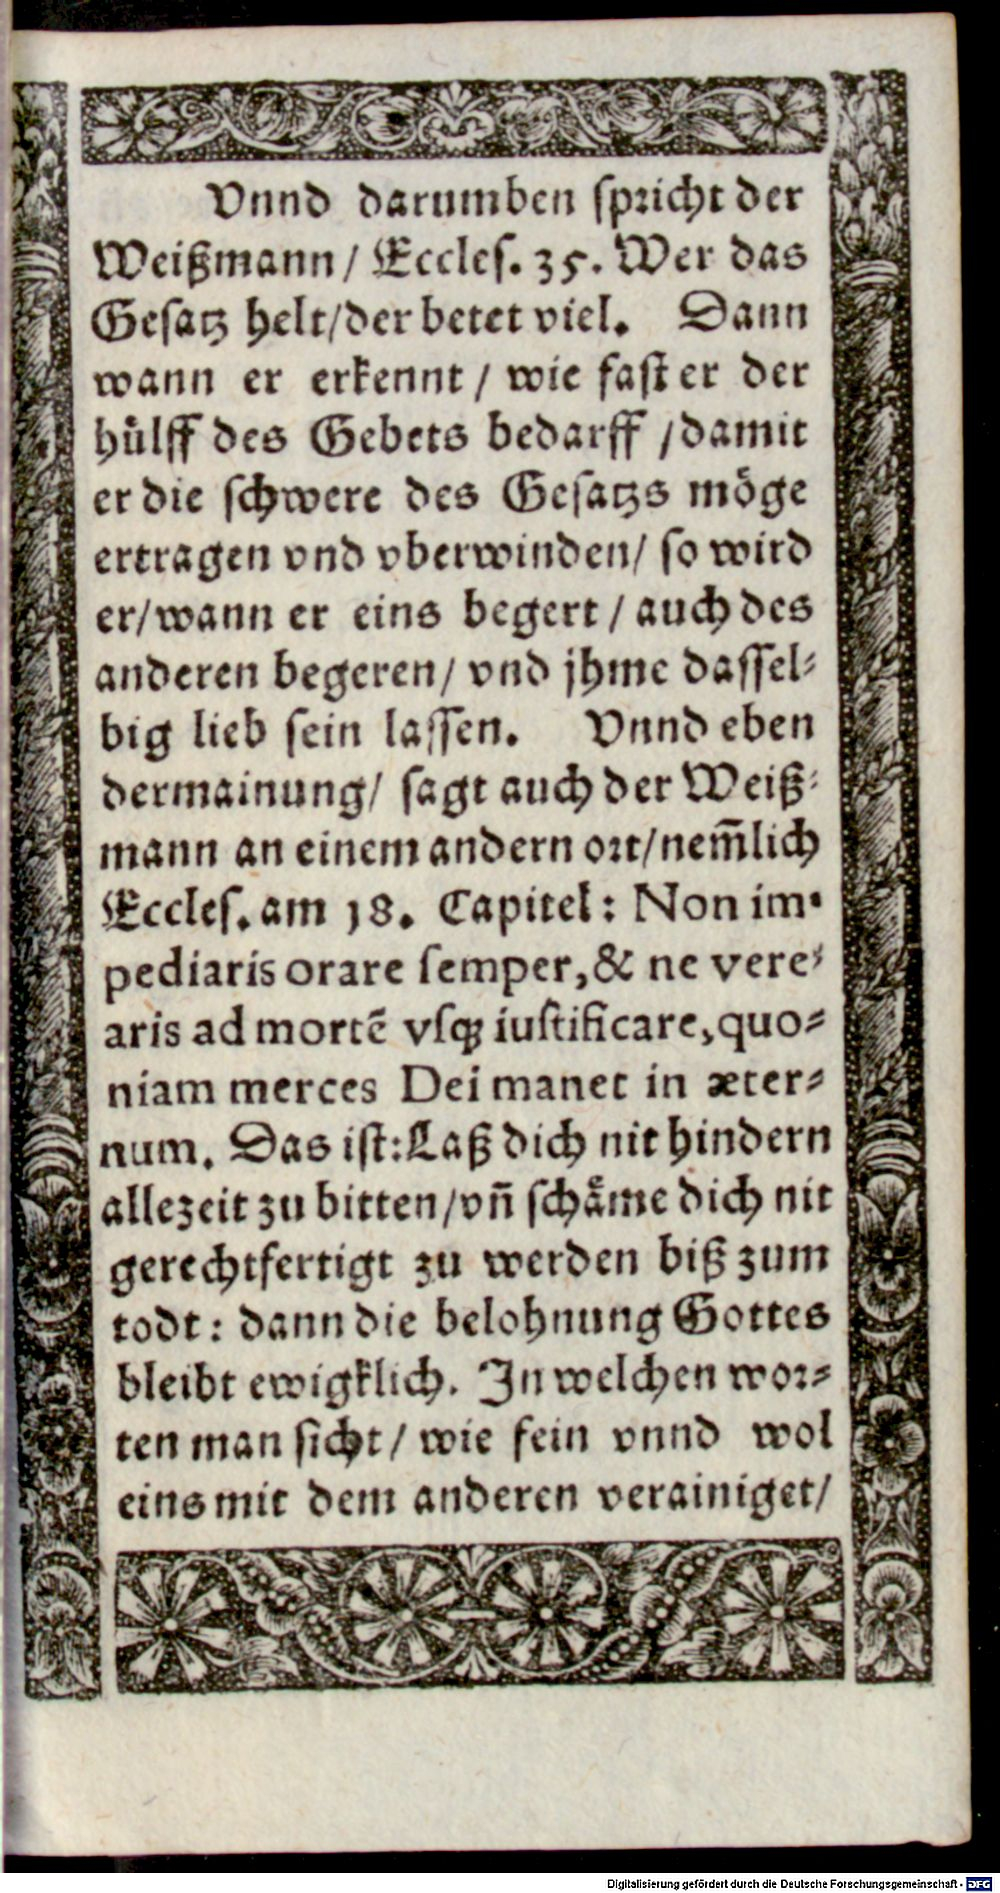 Vnnd darumben spricht der
Weißmann/ Eccles. 35. Wer das
Gesatz helt/der betet viel. Dann
wann er erkennt / wie fast er der
huͤlff des Gebets bedarff /damit
er die schwere des Gesatzs moͤge
ertragen vnd vberwinden/ so wird
er/wann er eins begert / auch des
anderen begeren/ vnd jhme dassel-
big lieb sein lassen. Vnnd eben
dermainung/ sagt auch der Weiß-
mann an einem andern ort/nem̃lich
Eccles. am 18. Capitel: Non im-
pediaris orare semper, & ne vere-
aris ad mortē vsqꝫ iustificare, quo-
niam merces Dei manet in æter-
num. Das ist: Laß dich nit hindern
allezeit zu bitten/vñ schaͤme dich nit
gerechtfertigt zu werden biß zum
todt: dann die belohnung Gottes
bleibt ewigklich. In welchen wor-
ten man sicht/ wie fein vnnd wol
eins mit dem anderen verainiget/
Digitalisierung gefördert durch die Deutsche Forschungsgemeinschaft - DFG